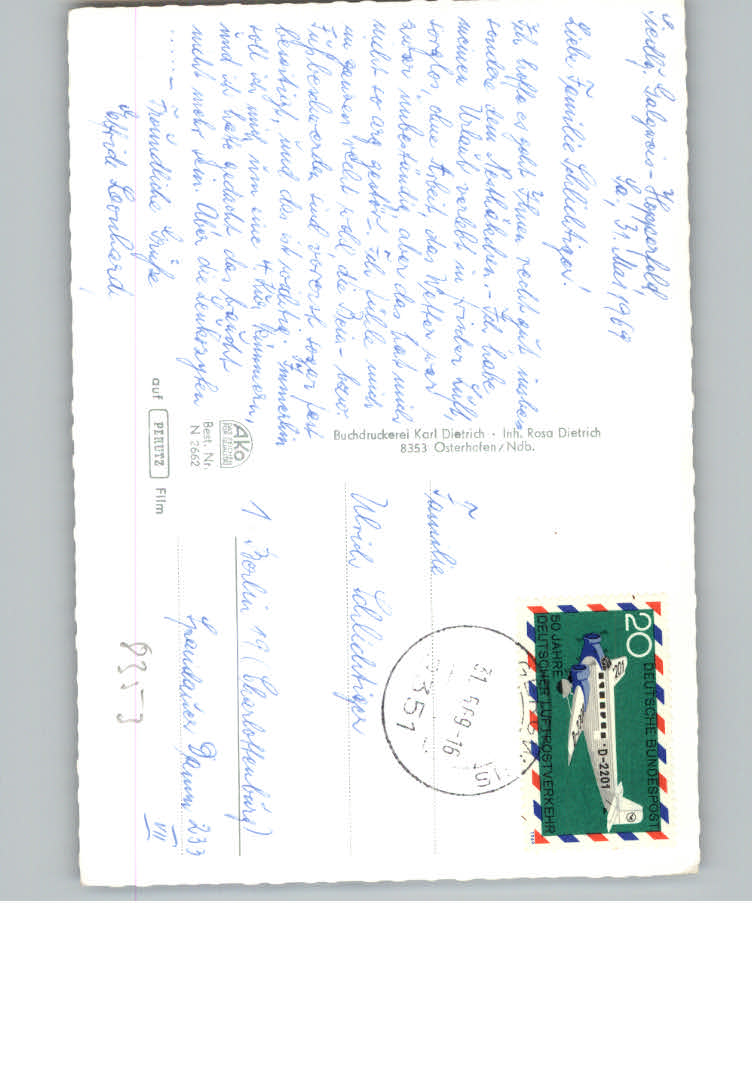 Siedlg. Galgweis-Hopperfeld,
Sa, 31. Mai 1969
Liebe Familie Schlichtiger!
Ich hoffe es geht Ihnen recht gut insbe-
sondere dem Nesthäkchen. - Ich habe
meinen Urlaub verlebt in frischer Luft,
sorglos, ohne Arbeit, das Wetter war
zwar unbeständig, aber das hat mich
nicht so arg gestört. Ich fühle mich
im ganzen recht wohl, die Bein- bzw.
Fußbeschwerden sind vorerst sogar fast
beseitigt, und das ist wichtig. Immerhin
soll ich mich um eine Kur kümmern,
und ich habe gedacht das braucht
nicht mehr sein. Aber die Leukozyten
......
Freundliche Grüße
Leonhard
Buchdruckerei Karl Dietrich · Inh. Rosa Dietrich
8353 Osterhofen/Ndb.
Ako
Best. Nr.
N 2662
auf PERUTZ Film
Familie
Ulrich Schlichtiger
1 Berlin 19 (Charlottenburg)
Spandauer Damm 233
VII
8353
8351
31.5.69-16
20
DEUTSCHE BUNDESPOST
D-2201
50 JAHRE
DEUTSCHER LUFTPOSTVERKEHR
1969